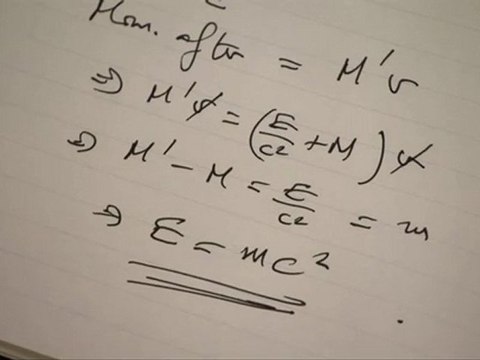 Mom. after = M'v
⇒ M'v = (E/c2 + M) v
⇒ M' - M = E/c2 = m
⇒ E = mc²